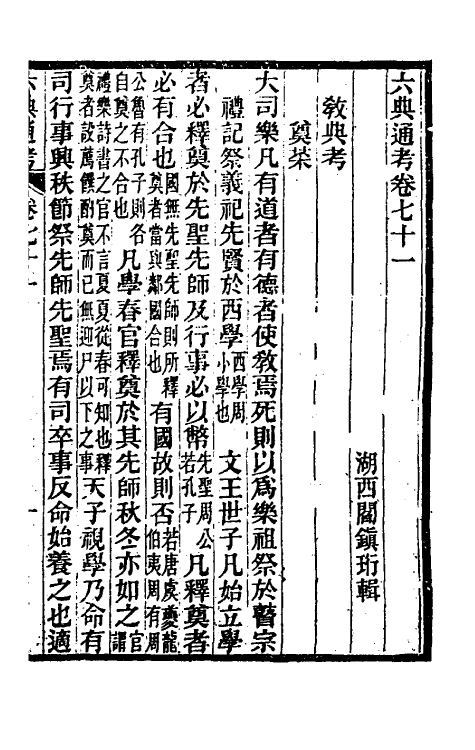 六典通考卷七十一
湖西閻鎮珩輯
教典考
奠菜
大司樂凡有道者有德者使教焉死則以爲樂祖祭於瞽宗
禮記祭義祀先賢於西學西學周小學也 文王世子凡始立學
者必釋奠於先聖先師及行事必以幣先聖周公若孔子 凡釋奠者
必有合也國無先聖先師則所釋奠者當與鄰國合也 有國故則否若唐虞夔龍伯夷周有周
公魯有孔子則各自奠之不合也 凡學春官釋奠於其先師秋冬亦如之官謂
禮樂詩書之官不言夏夏從春可知也釋奠者設薦饌酌奠而已無迎尸以下之事 天子視學乃命有
司行事興秩節祭先師先聖焉有司卒事反命始養之也適
六典通考 卷七十一 一